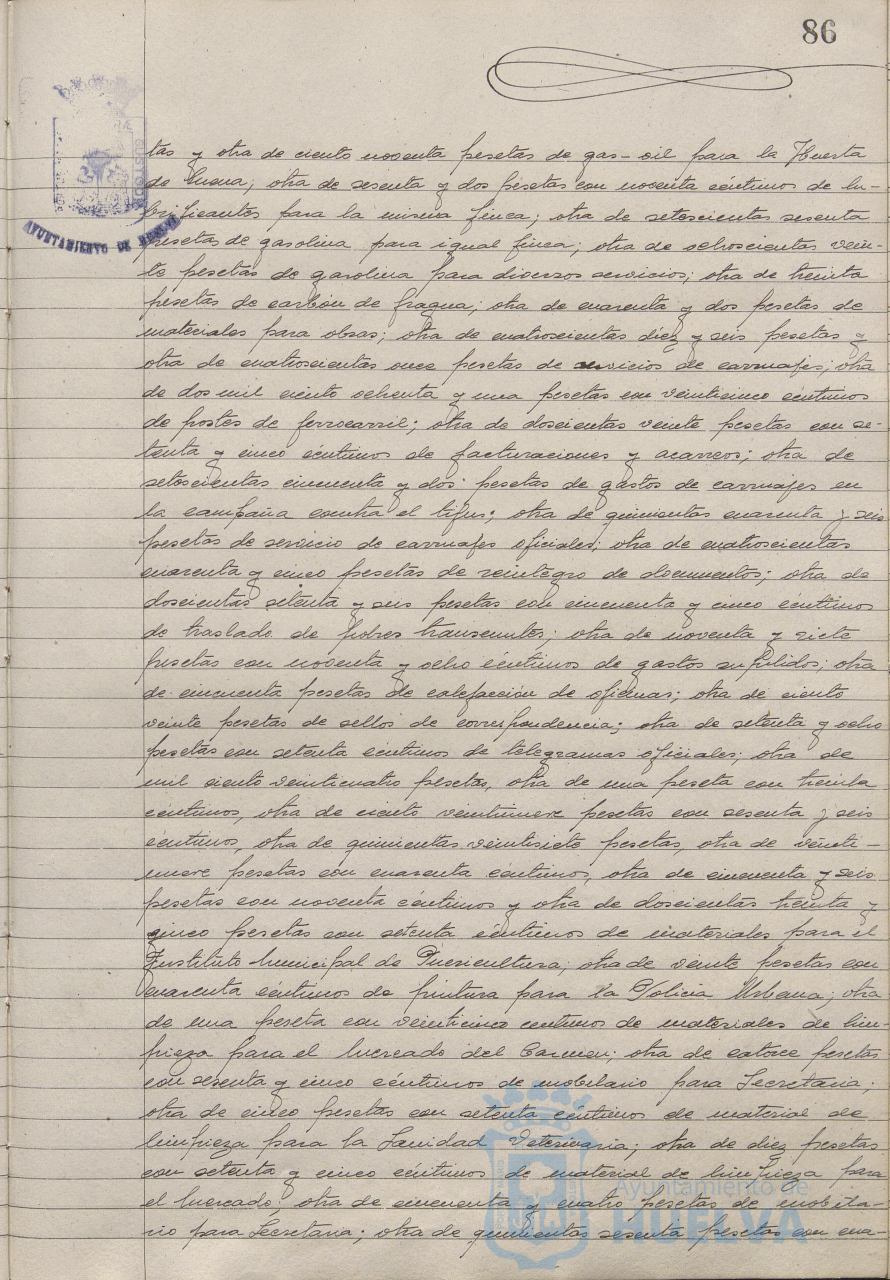 86
AYUNTAMIENTO DE HUELVA
tas y otra de ciento noventa pesetas de gas-oil para la Huerta
de Mena; otra de sesenta y dos pesetas con noventa céntimos de lu-
brificantes para la misma finca; otra de setecientas sesenta
pesetas de gasolina para igual finca; otra de ochocientas vein-
te pesetas de gasolina para diversos servicios; otra de treinta
pesetas de carbón de fragua; otra de cuarenta y dos pesetas de
materiales para obras; otra de cuatrocientas diez y seis pesetas y
otra de cuatrocientas once pesetas de servicios de carruajes; otra
de dos mil ciento ochenta y una pesetas con veinticinco céntimos
de portes de ferrocarril; otra de doscientas veinte pesetas con se-
tenta y cinco céntimos de facturaciones y acarreos; otra de
setecientas cincuenta y dos pesetas de gastos de carruajes en
la campaña contra el tifus; otra de quinientas cuarenta y seis
pesetas de servicio de carruajes oficiales; otra de cuatrocientas
cuarenta y cinco pesetas de reintegro de documentos; otra de
doscientas setenta y seis pesetas con cincuenta y cinco céntimos
de traslado de pobres transeuntes; otra de noventa y siete
pesetas con noventa y ocho céntimos de gastos suplidos; otra
de cincuenta pesetas de calefacción de oficinas; otra de ciento
veinte pesetas de sellos de correspondencia; otra de setenta y ocho
pesetas con setenta céntimos de telegramas oficiales; otra de
mil ciento veinticuatro pesetas, otra de una peseta con treinta
céntimos, otra de ciento veintinueve pesetas con sesenta y seis
céntimos, otra de quinientas veintisiete pesetas, otra de veinti-
nueve pesetas con cuarenta céntimos, otra de cincuenta y seis
pesetas con noventa céntimos y otra de doscientas treinta y
cinco pesetas con setenta céntimos de materiales para el
Instituto Municipal de Puericultura; otra de veinte pesetas con
cuarenta céntimos de pintura para la Policia Urbana; otra
de una peseta con veinticinco centimos de materiales de lim-
pieza para el Mercado del Carmen; otra de catorce pesetas
con sesenta y cinco céntimos de mobilario para Secretaria;
otra de cinco pesetas con setenta céntimos de material de
limpieza para la Sanidad Veterinaria; otra de diez pesetas
con setenta y cinco céntimos de material de limpieza para
el Mercado, otra de cincuenta y cuatro pesetas de mobila-
rio para Secretaria; otra de quinientas sesenta pesetas con cua-
Ayuntamiento de
HUELVA